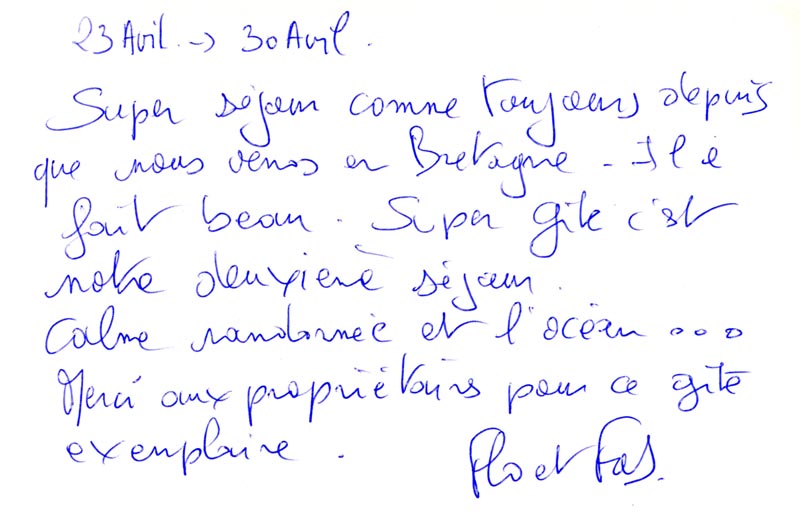 23 Avril → 30 Avril.
Super séjour comme toujours depuis
que nous venos en Bretagne - Il a
fait beau. Super gîte c'est
notre deuxième séjour.
Calme randonnée et l'océan ...
Merci aux propriétaires pour ce gîte
exemplaire.
Flo et Fas.